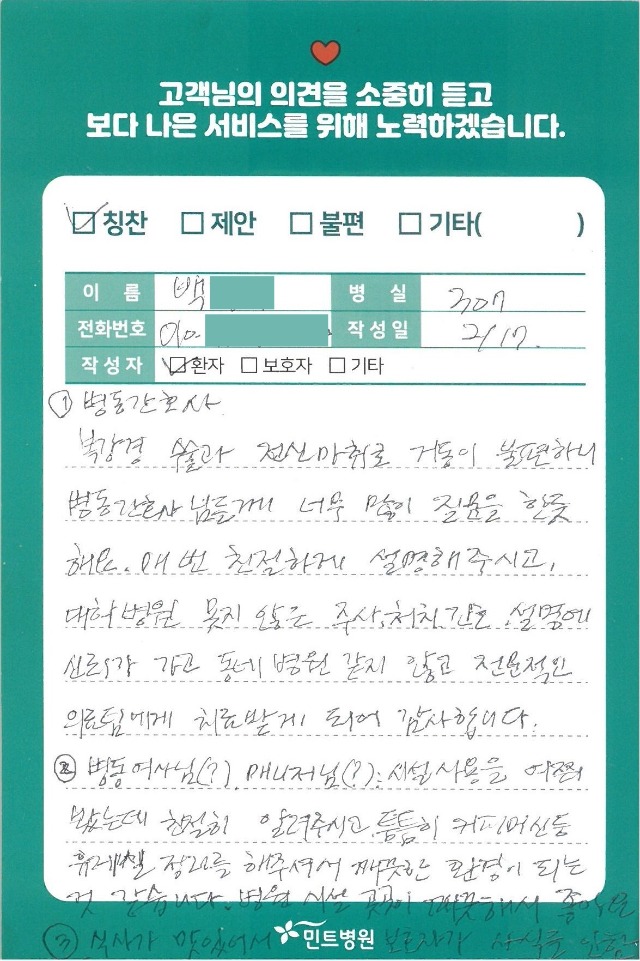 고객님의 의견을 소중히 듣고
보다 나은 서비스를 위해 노력하겠습니다.
칭찬 제안 불편 기타( )
이 름 백 병 실 307
전화번호 010- 작성일 2/17.
작성자 환자 보호자 기타
① 병동간호사
복강경 수술과 전신마취로 거동이 불편하니
병동간호사님들께 너무 많이 질문을 한듯
해요. 매 번 친절하게 설명해주시고,
대학병원 못지 않은 주사,처치,간호,설명에
신뢰가 가고 동네병원 같지 않고 전문적인
의료팀에게 치료받게 되어 감사합니다.
② 병동여사님(?), 매니저님(?): 시설사용을 여쭤
봤는데 친절히 알려주시고 틈틈히 커피머신등
휴게실 정리를 해주셔서 깨끗한 환경이 되는
것 같습니다. 병원 시설 곳곳이 깨끗해서 좋아요
③ 식사가 맛있어서 보호자가 사식을 안
민트병원